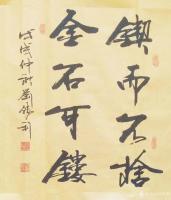 锲而不捨
金石可镂
戊戌仲秋